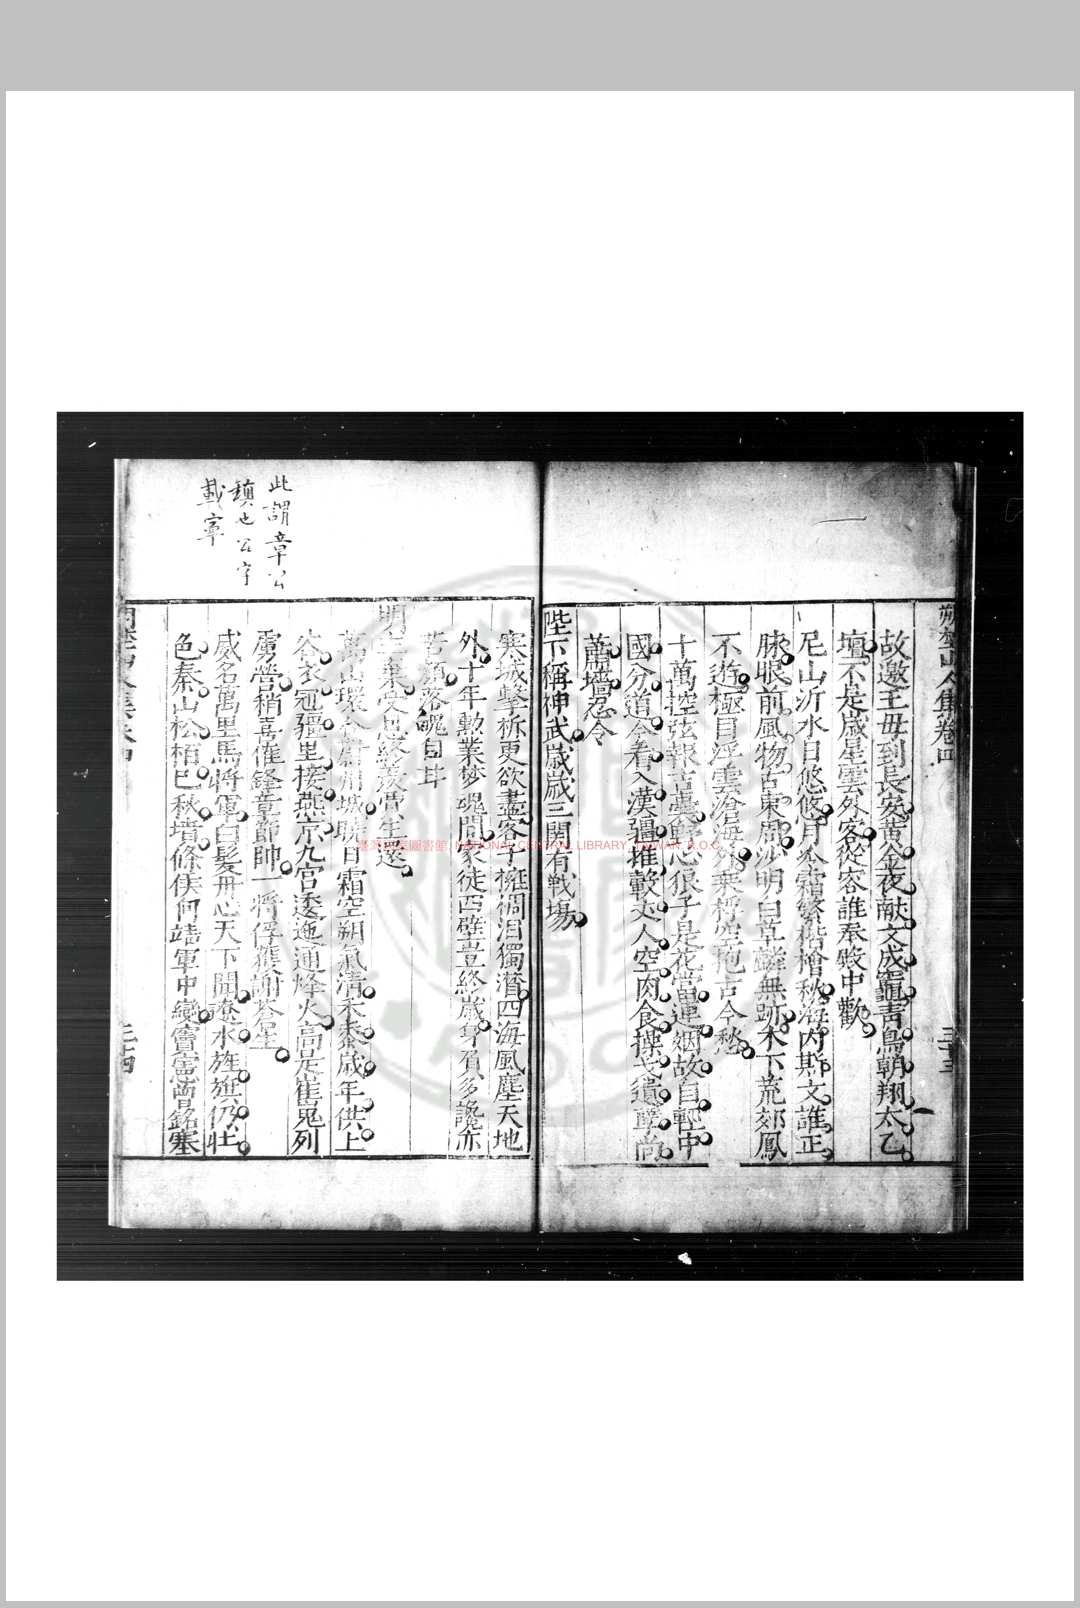 山人集卷四
三十三
故邀王母到長安黄金夜献文成竈青鳥朝翔太乙
壇不是歲星雲外客從容誰奉殿中歡
尼山沂水日悠悠月冷霜繁檜檜秋海内斯文誰正
脉眼前風物古東周沙明白草
無跡木下荒郊鳳
不遊極目浮雲滄海外乘桴空抱古今愁
十萬控弦報古囊野心狼子是花當連烟故自輕中
國分道今看入漢疆推轂
人空肉食操戈遺孽尚
蕭墻忍令
陛下稱神武歲歲三關有戰場
寒城擊柝更欲盡客子擁裯淚獨潸四海風塵天地
外十年勳業夢魂間家徒四壁豈終歲身負多讒亦
苦顔落魄自甘
明主棄受恩終
賈生還
萬山環
蔚州城曉日霜空朔氣清禾黍歲年供上
谷衣冠疆里接燕京九宫逶迤通烽火高是崔嵬列
虜營稍喜催鋒章節帥一將俘
謝
星
威名萬里馬將軍白髮丹心天下聞
水旌旗仍壮
色秦山松栢已秋墳條侯何
軍中變竇憲
銘塞
三十四
此謂章公
鎮也公字
載寧
臺灣國家圖書館, NATIONAL CENTRAL LIBRARY, TAIWAN, R.O.C.